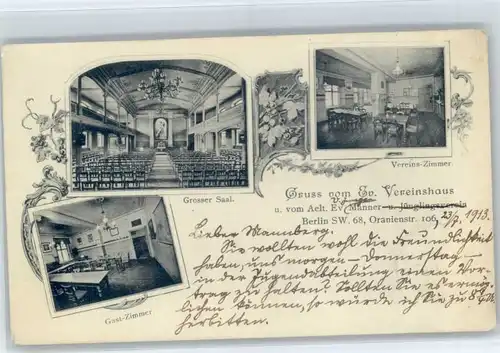 Grosser Saal.
Vereins-Zimmer
Gast-Zimmer
Gruss vom Ev. Vereinshaus
u. vom Aelt. Ev. Männer- u. Jünglingsverein
Berlin SW. 68, Oranienstr. 106, 1913.
Lieber Mannberg.
Sie wollten wohl die Freundlichkeit
haben, uns morgen - Donnerstag -
in der Jugendabteilung einen Vor-
trag zu halten? Sollten Sie es ermög-
lichen können, so würde ich Sie zu 8
herbitten.